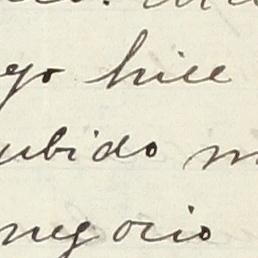 yo hice
ubido m
negocio